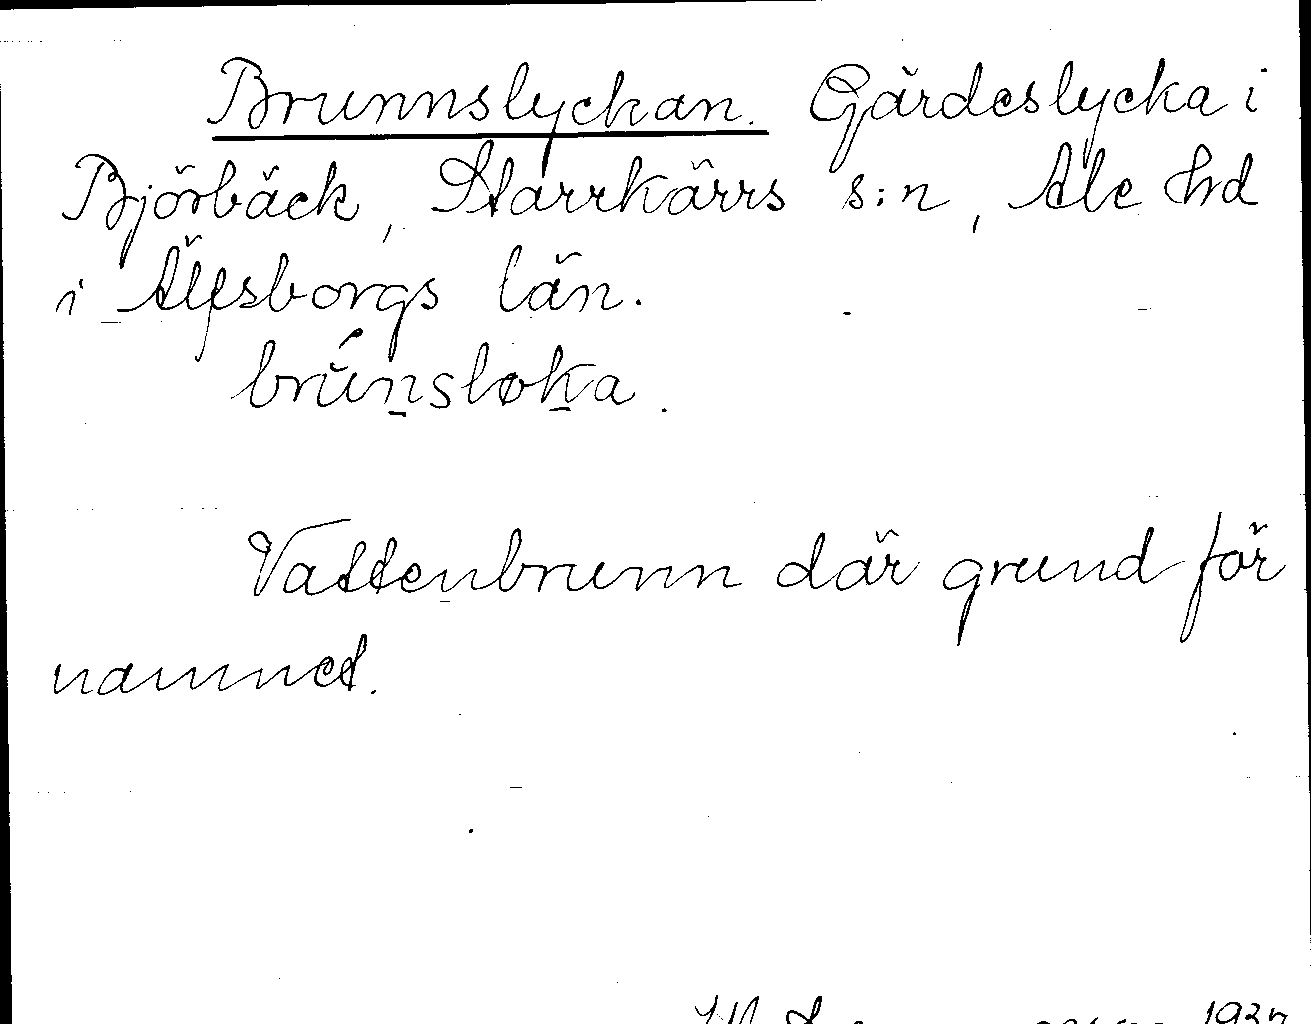 Brunnslyckan. Gärdeslycka i
Björbäck, Starrkärrs s:n, Ale hd
i Älfsborgs län.
brúnsloka.
Vattenbrunn där grund för
namnet.